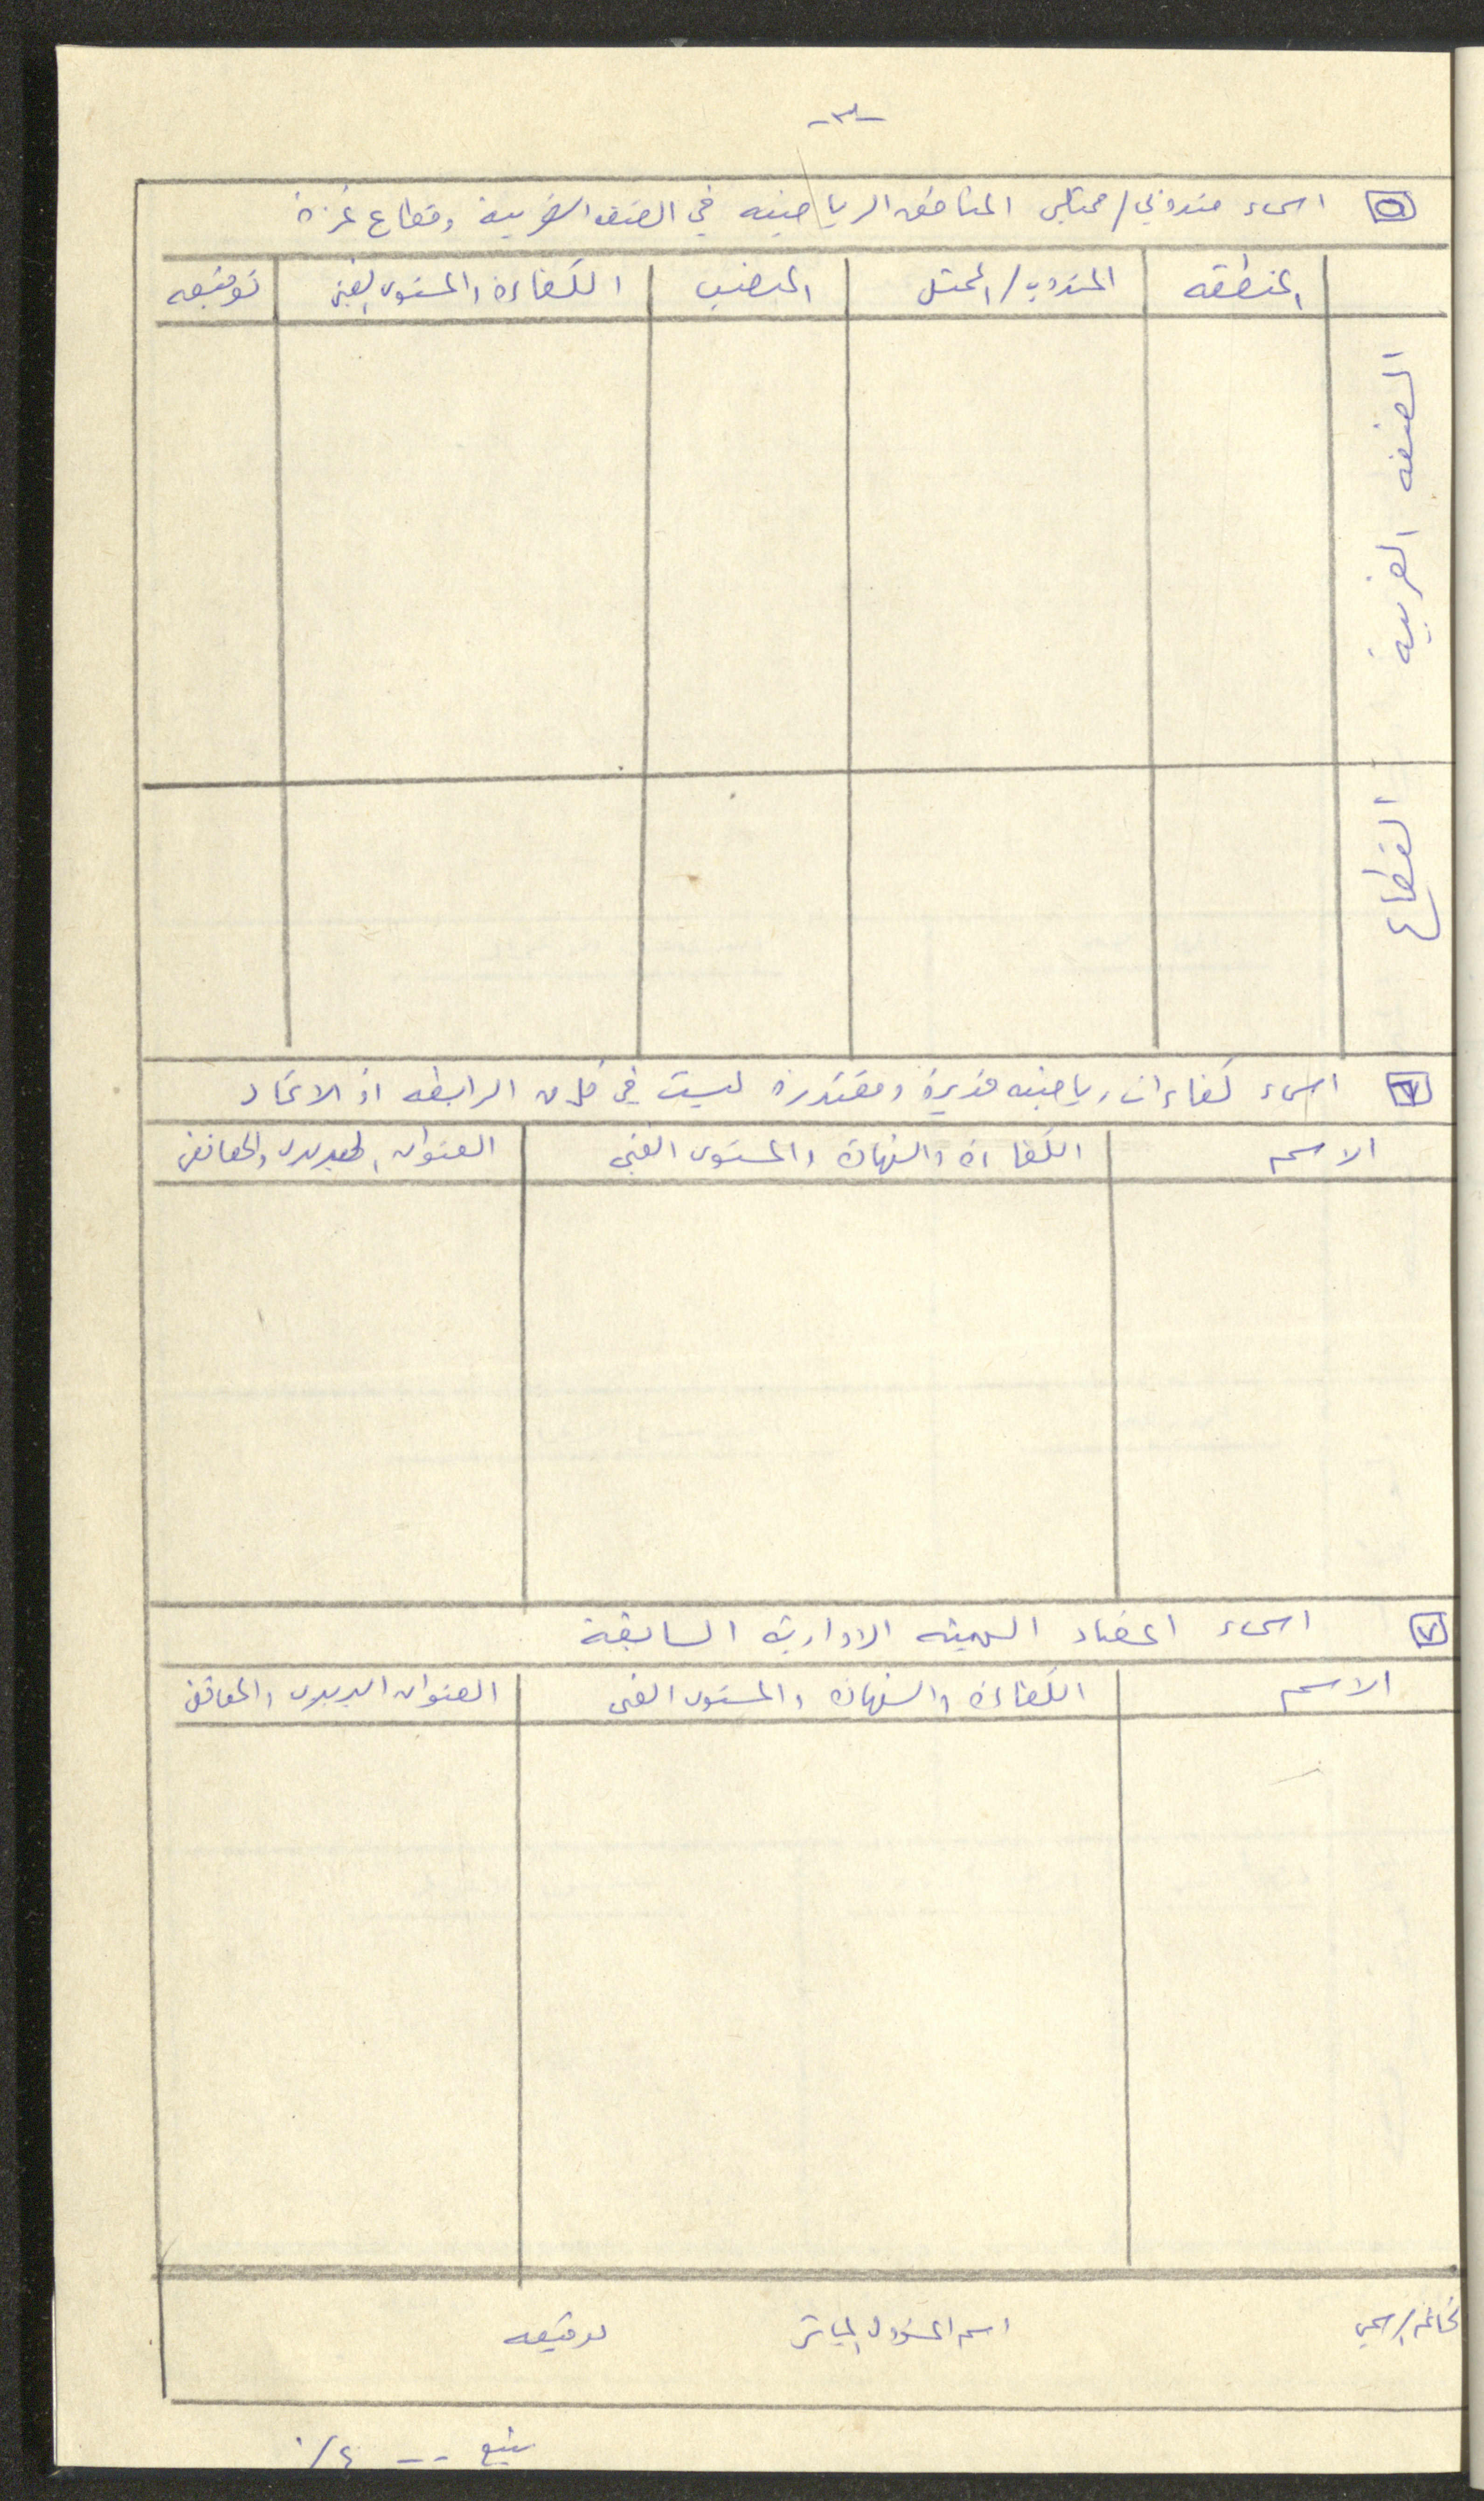 -٣-
٥ اسماء مندوبي/ممثلي المناطق الرياضيه في الضفه الغربية وقطاع غزة
المنطقه | المندوب/الممثل | المنصب | الكفاءة والمستوى الفني | توقيعه
الضفه الغربية
القطاع
٦ اسماء كفاءات رياضيه قديرة ومقتدره ليست في الرابطه او الاتحاد
الاسم | الكفاءة والشهادة والمستوى الفني | العنوان البريدى والهاتفي
٧ اسماء اعضاء الهيئه الاداريه السابقة
الاسم | الكفاءة والشهادة والمستوى الفني | العنوان البريدى والهاتفي
الخاتم الرسمي اسم المسؤول المباشر توقيعه
يتبع -- ٤/.